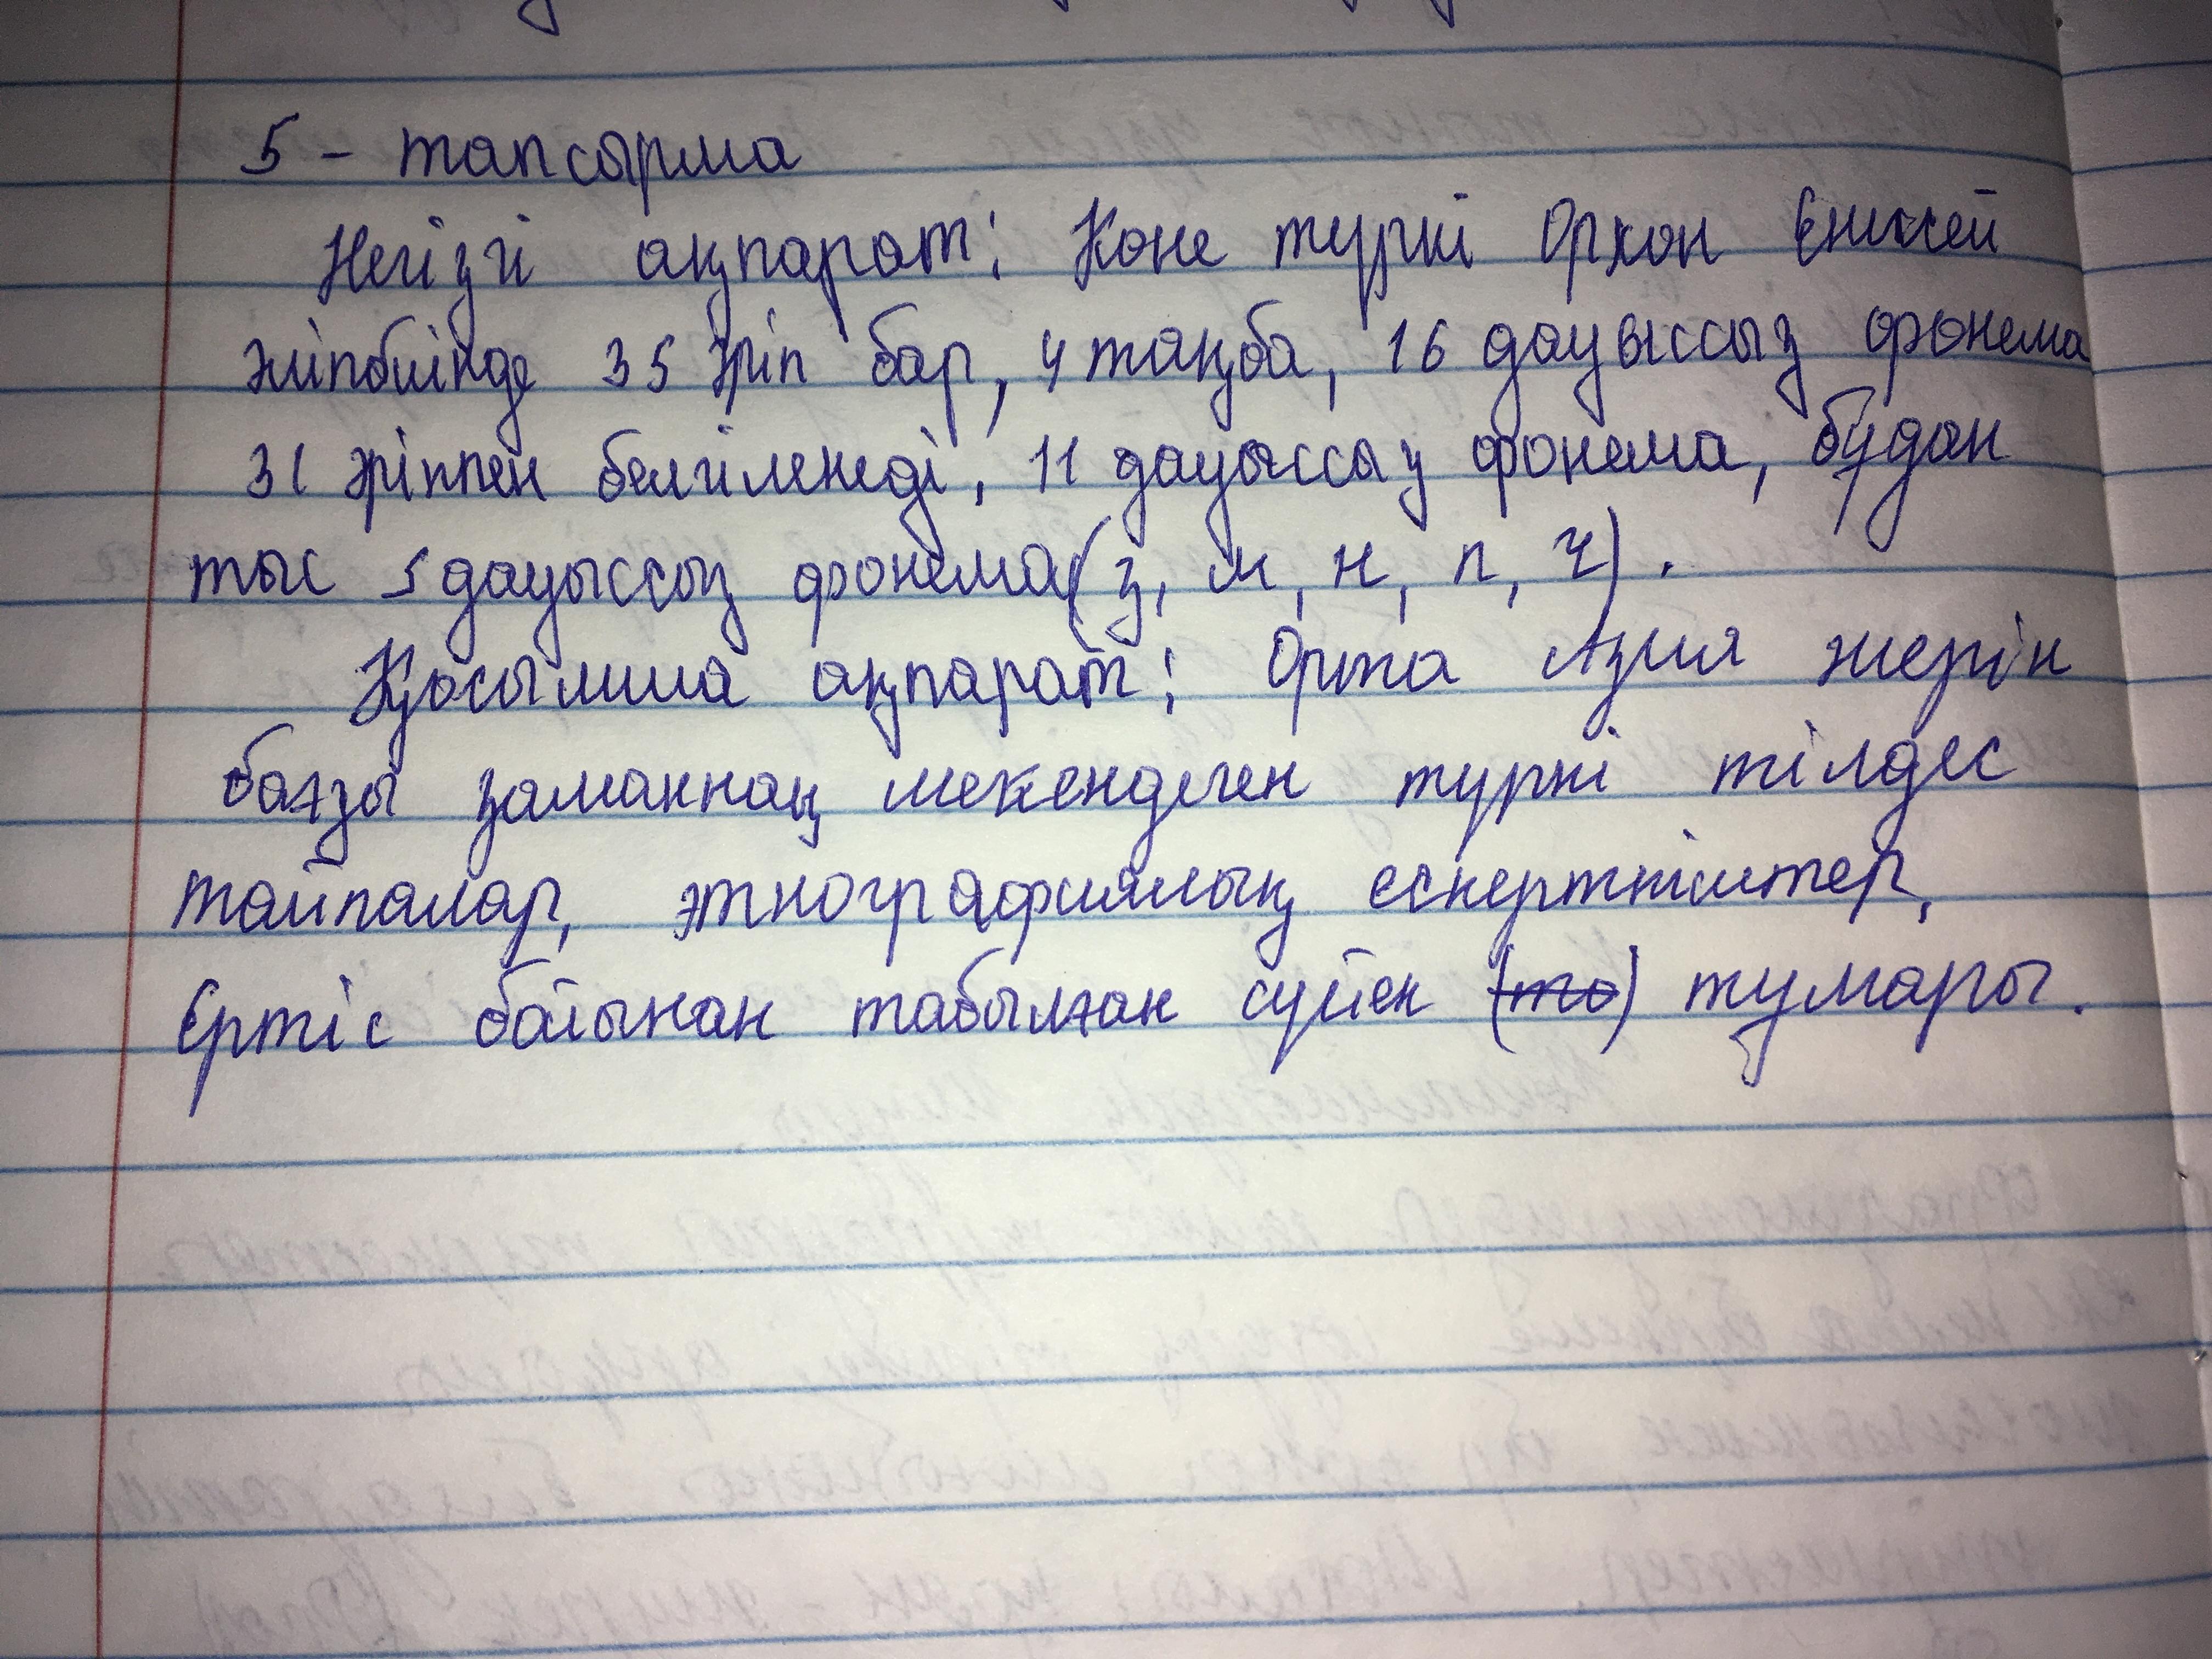 5 - тапсырма
Негізгі ақпарат: Көне түркі Орхон Енисей
әліпбиінде 35 әріп бар, 4 таңба, 16 дауыссыз фонема
31 әріппен белгіленеді, 11 дауыссыз фонема, бұдан
тыс 5 дауыссыз фонема (з, м, н, п, ч).
Қосымша ақпарат: Орта Азия жерін
бағзы заманнан мекендеген түркі тілдес
тайпалар, этнографиялық ескерткіштер,
Ертіс бойынан табылған сүйек (то) тумары.